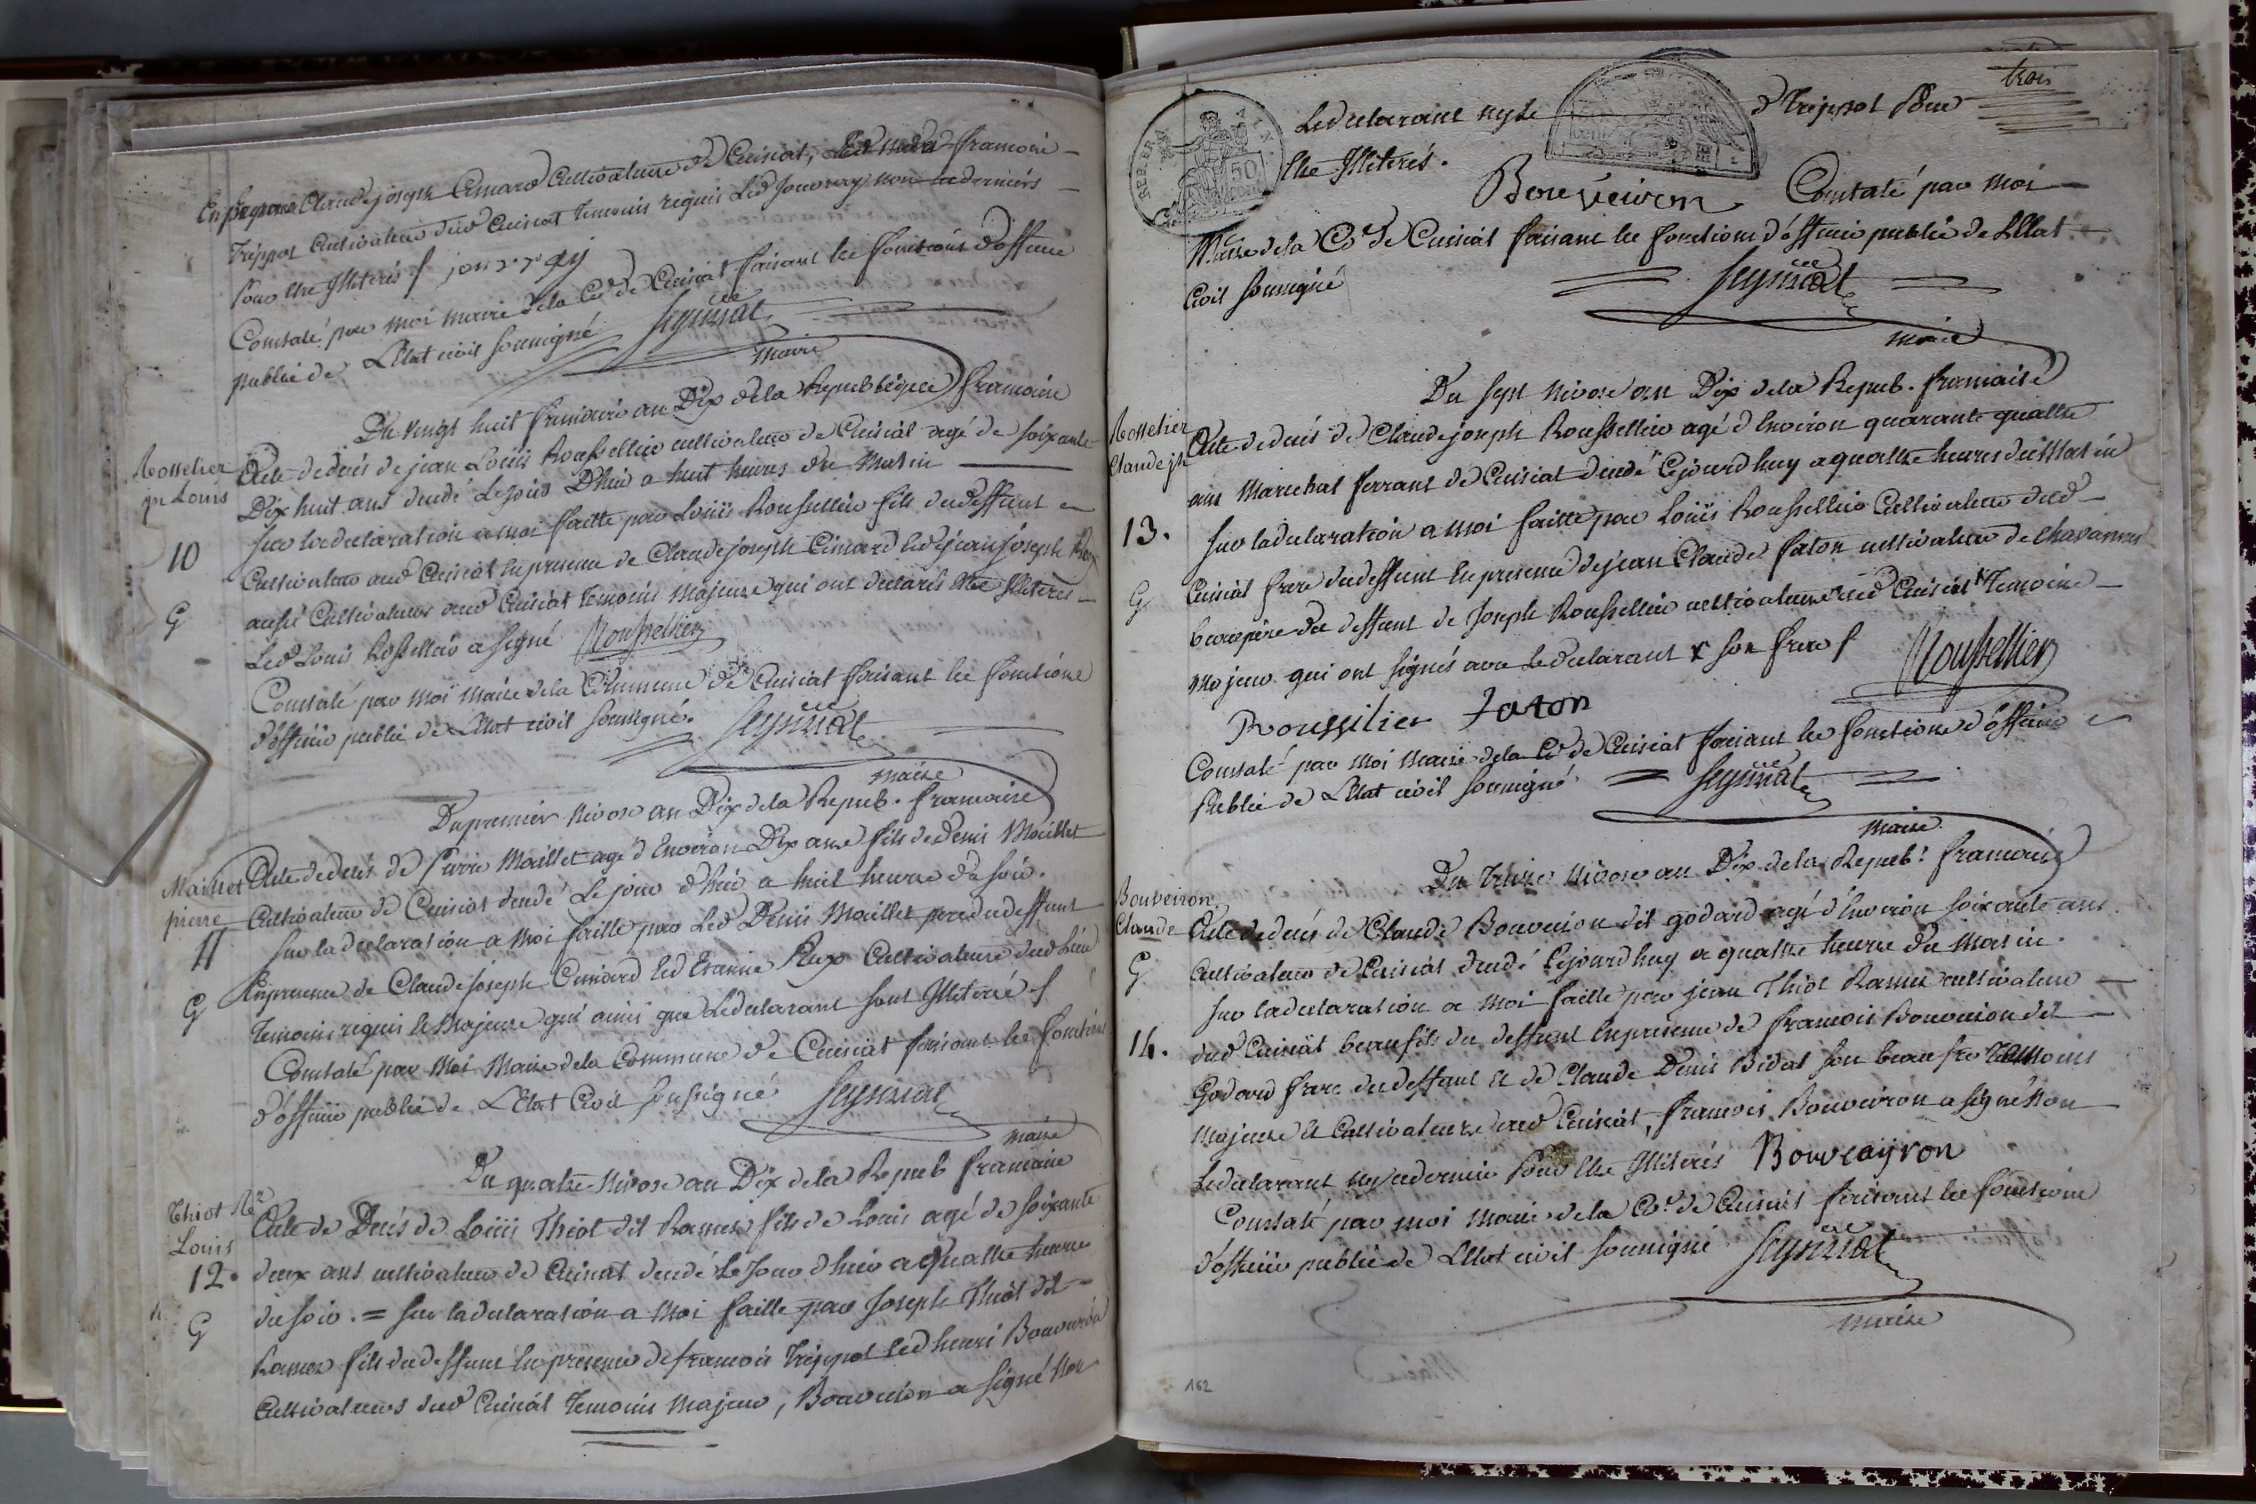 En presence Claude joseph Cuinard Cultivateur de Cuisiat, françois
Treppoz cultivateur dud Cuisiat temoins requis Led non cederniers
pour etre Illiterés
Constaté par moi maire dela Ce de Cuisiat faisant les fonctions d'officier
publié de L'Etat civil soussigné
maire
Du vingt huit frimaire an Dix dela Republique francoise
Rosselier
jn Louis
10
G
Acte de decés de jean Loüis Rousselier cultivateur de Cuisiat agé de soixante
Dix huit ans decedé Le jour D'hier a huit heures du Matin
sur la declaration a moi faitte par Loüis Rousselier fils du deffunt
Cultivateur aud Cuisiat En presence de Claude joseph Cuinard et de jean joseph
aussi Cultivateurs aud Cuisiat temoins Majeurs qui ont declarés etre Illiteres
Led Louis Rosselier a signé Rousselier
Constaté par moi Maire dela Commune de Cuisiat faisant les fonctions
d'officier publié de L'Etat civil soussigné.
maire
Du premier Nivose an Dix dela Repub. francoise
Maillet
pierre
11
G
Acte de decés de Pierre Maillet agé d'Environ Dix ans fils de Denis Maillet
Cultivateur de Cuisiat decedé Le jour d'hier a huit heures du soir.
sur la declaration a Moi faitte par Led Denis Maillet pere du deffunt
En presence de Claude joseph Cuinard Et d'Etienne Cultivateurs dud lieu
temoins requis et Majeurs qui ainsi que Le declarant sont Illiterés
Constaté par Moi Maire dela Commune de Cuisiat faisant les fonctions
d'officier publié de L'Etat Civil soussigné
maire
Du quatre Nivose an Dix dela Repub francoise
Thiot Rz
Louis
12.
G
Acte de Decés de Loüis Thiot dit Ramus fils de Louis agé de soixante
deux ans cultivateur de Cuisiat decedé Le jour d'hier a quattre heures
du soir. = sur la declaration a Moi faitte par Joseph Thiot dit
Ramus fils du deffunt En presence de francois Treppoz Et d'henri Bouveiron
Cultivateurs dud Cuisiat temoins majeurs, Bouveiron a signé Non
trois
50
Le declarant ny Le d Treppoz Pour
etre Illiterés.
Bouveiron Constaté par moi
Maire dela Ce de Cuisiat faisant les fonctions d'officier publié de L'Etat
Civil soussigné
maire
Du sept Nivose an Dix dela Repub. francaise
Rosselier
Claude jh
13.
G
Acte de decés de Claude joseph Rousselier agé d'Environ quarante quattre
ans Marechal ferrant de Cuisiat decedé Cejourd'huy a quattre heures du Matin
sur la declaration a moi faitte par Loüis Rousselier Cultivateur dud
Cuisiat frere du deffunt En presence de jean Claude faton cultivateur de chavannes
beaupere du deffunt de Joseph Rousselier cultivateur aud Cuisiat temoins
majeur qui ont signés avec Le declarant son frere
Rousselier
Roussilier faton
Constaté par moi Maire dela Ce de Cuisiat faisant les fonctions d'officier
Publié de L'Etat civil soussigné
maire
Du treize Nivose an Dix dela Repub: francaise
Bouveiron
Claude
G
14.
Acte de decés de Claude Bouveiron dit godard agé d'Environ soixante ans
Cultivateur de Cuisiat decedé Cejourd'huy a quattre heures du Matin.
sur la declaration a moi faitte par jean Thiot Ramus cultivateur
dud Cuisiat beaufils du deffunt En presence de francois Bouveiron dit
Godard frere du deffunt et de Claude Denis Bidat son beaufre temoins
Majeurs et Cultivateurs aud Cuisiat, francois Bouveiron a signé Non
Le declarant ny cedernier Pour etre Illiterés Bouvayron
Constaté par moi Maire dela Ce. de Cuisiat faisant les fonctions
d'officier publié de L'Etat civil soussigné
maire
162